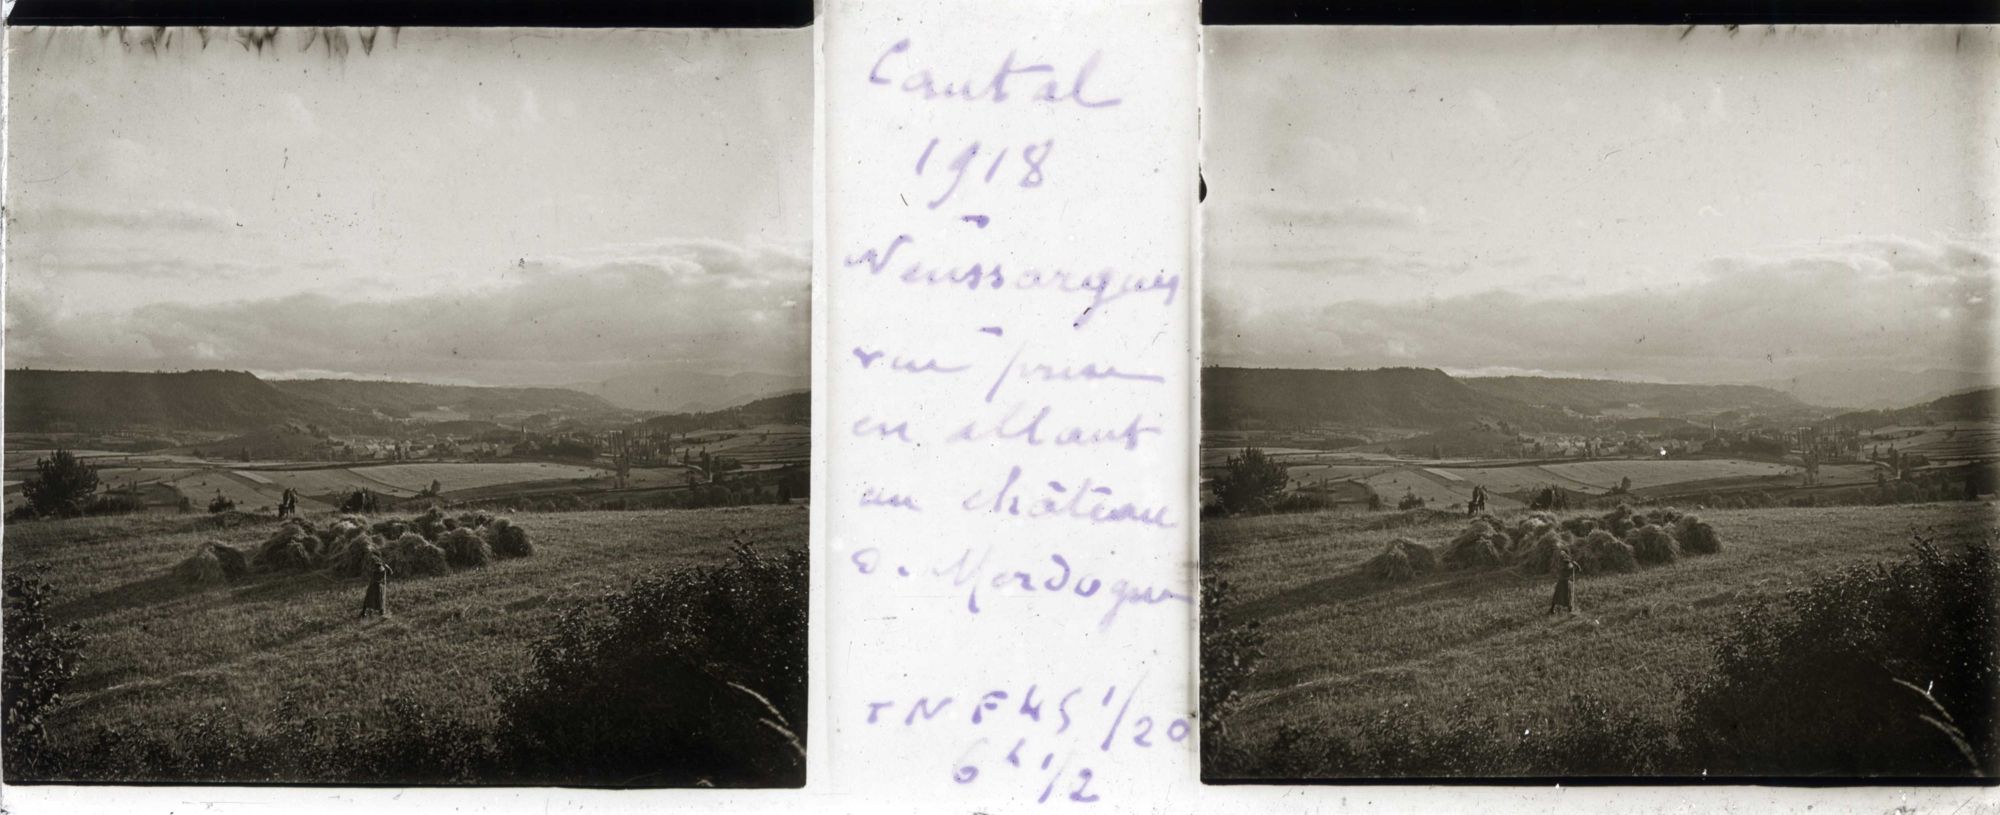 Cantal
1918
-
Neussargues
-
vue prise
en allant
au château
d. Mordogne
TN F45 1/20
6h 1/2